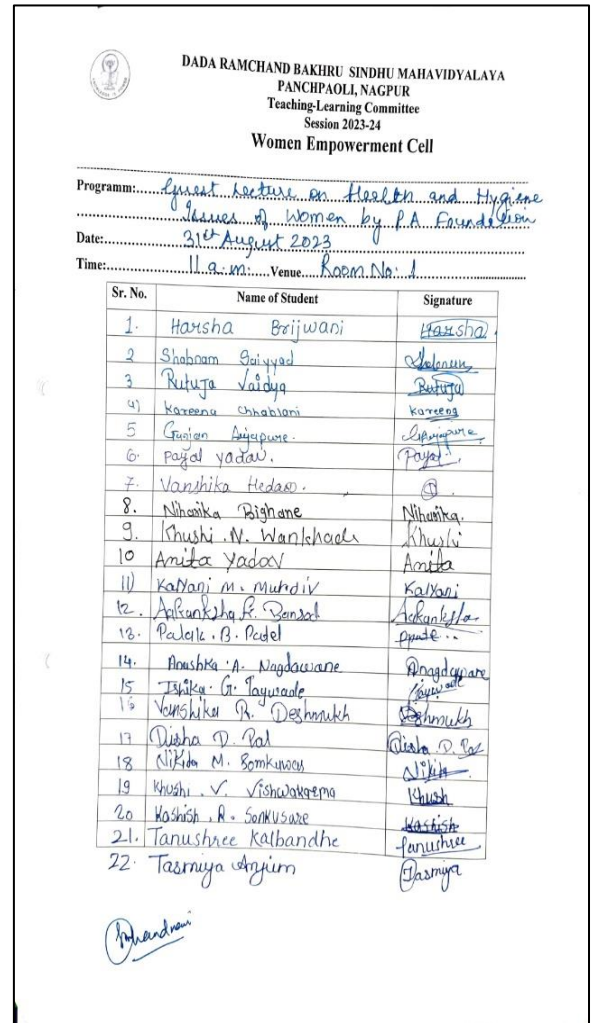 DADA RAMCHAND BAKHRU SINDHU MAHAVIDYALAYA
PANCHPAOLI, NAGPUR
Teaching-Learning Committee
Session 2023-24
Women Empowerment Cell
Programm:.....Guest Lecture on Health and Hygiene
Issues of Women by PA Foundation
Date:.....31st August 2023
Time:.....11 a.m.....Venue....Room No: 1
Sr. No. Name of Student Signature
1. Harsha Brijwani Harsha
2 Shabnam Saiyyad
3 Rutuja Vaidya Rutuja
4) Kareena Chhabrani Kareena
5 Gunjan
6. Payal Yadav. Payal
7. Vanshika Hedaoo.
8. Niharika Bighane Niharika.
9. Khushi . N. Wankhade Khushi
10 Anita Yadav Anita
11) Kalyani M. Mundiv Kalyani
12. Aakanksha R. Bansod Aakanksha
13. Palak . B. Patel
14. Anushka A. Nagdawane
15 Ishika G. Taywade Taywade
16 Vanshika R. Deshmukh Deshmukh
17 Disha D. Pal Disha . D. Pal
18 Nikita M. Nikita
19 Khushi . V. Vishwakarma Khush
20 Kashish . R. Sonkusare Kashish
21. Tanushree Kalbandhe Tanushree
22. Tasmiya Anjum Tasmiya